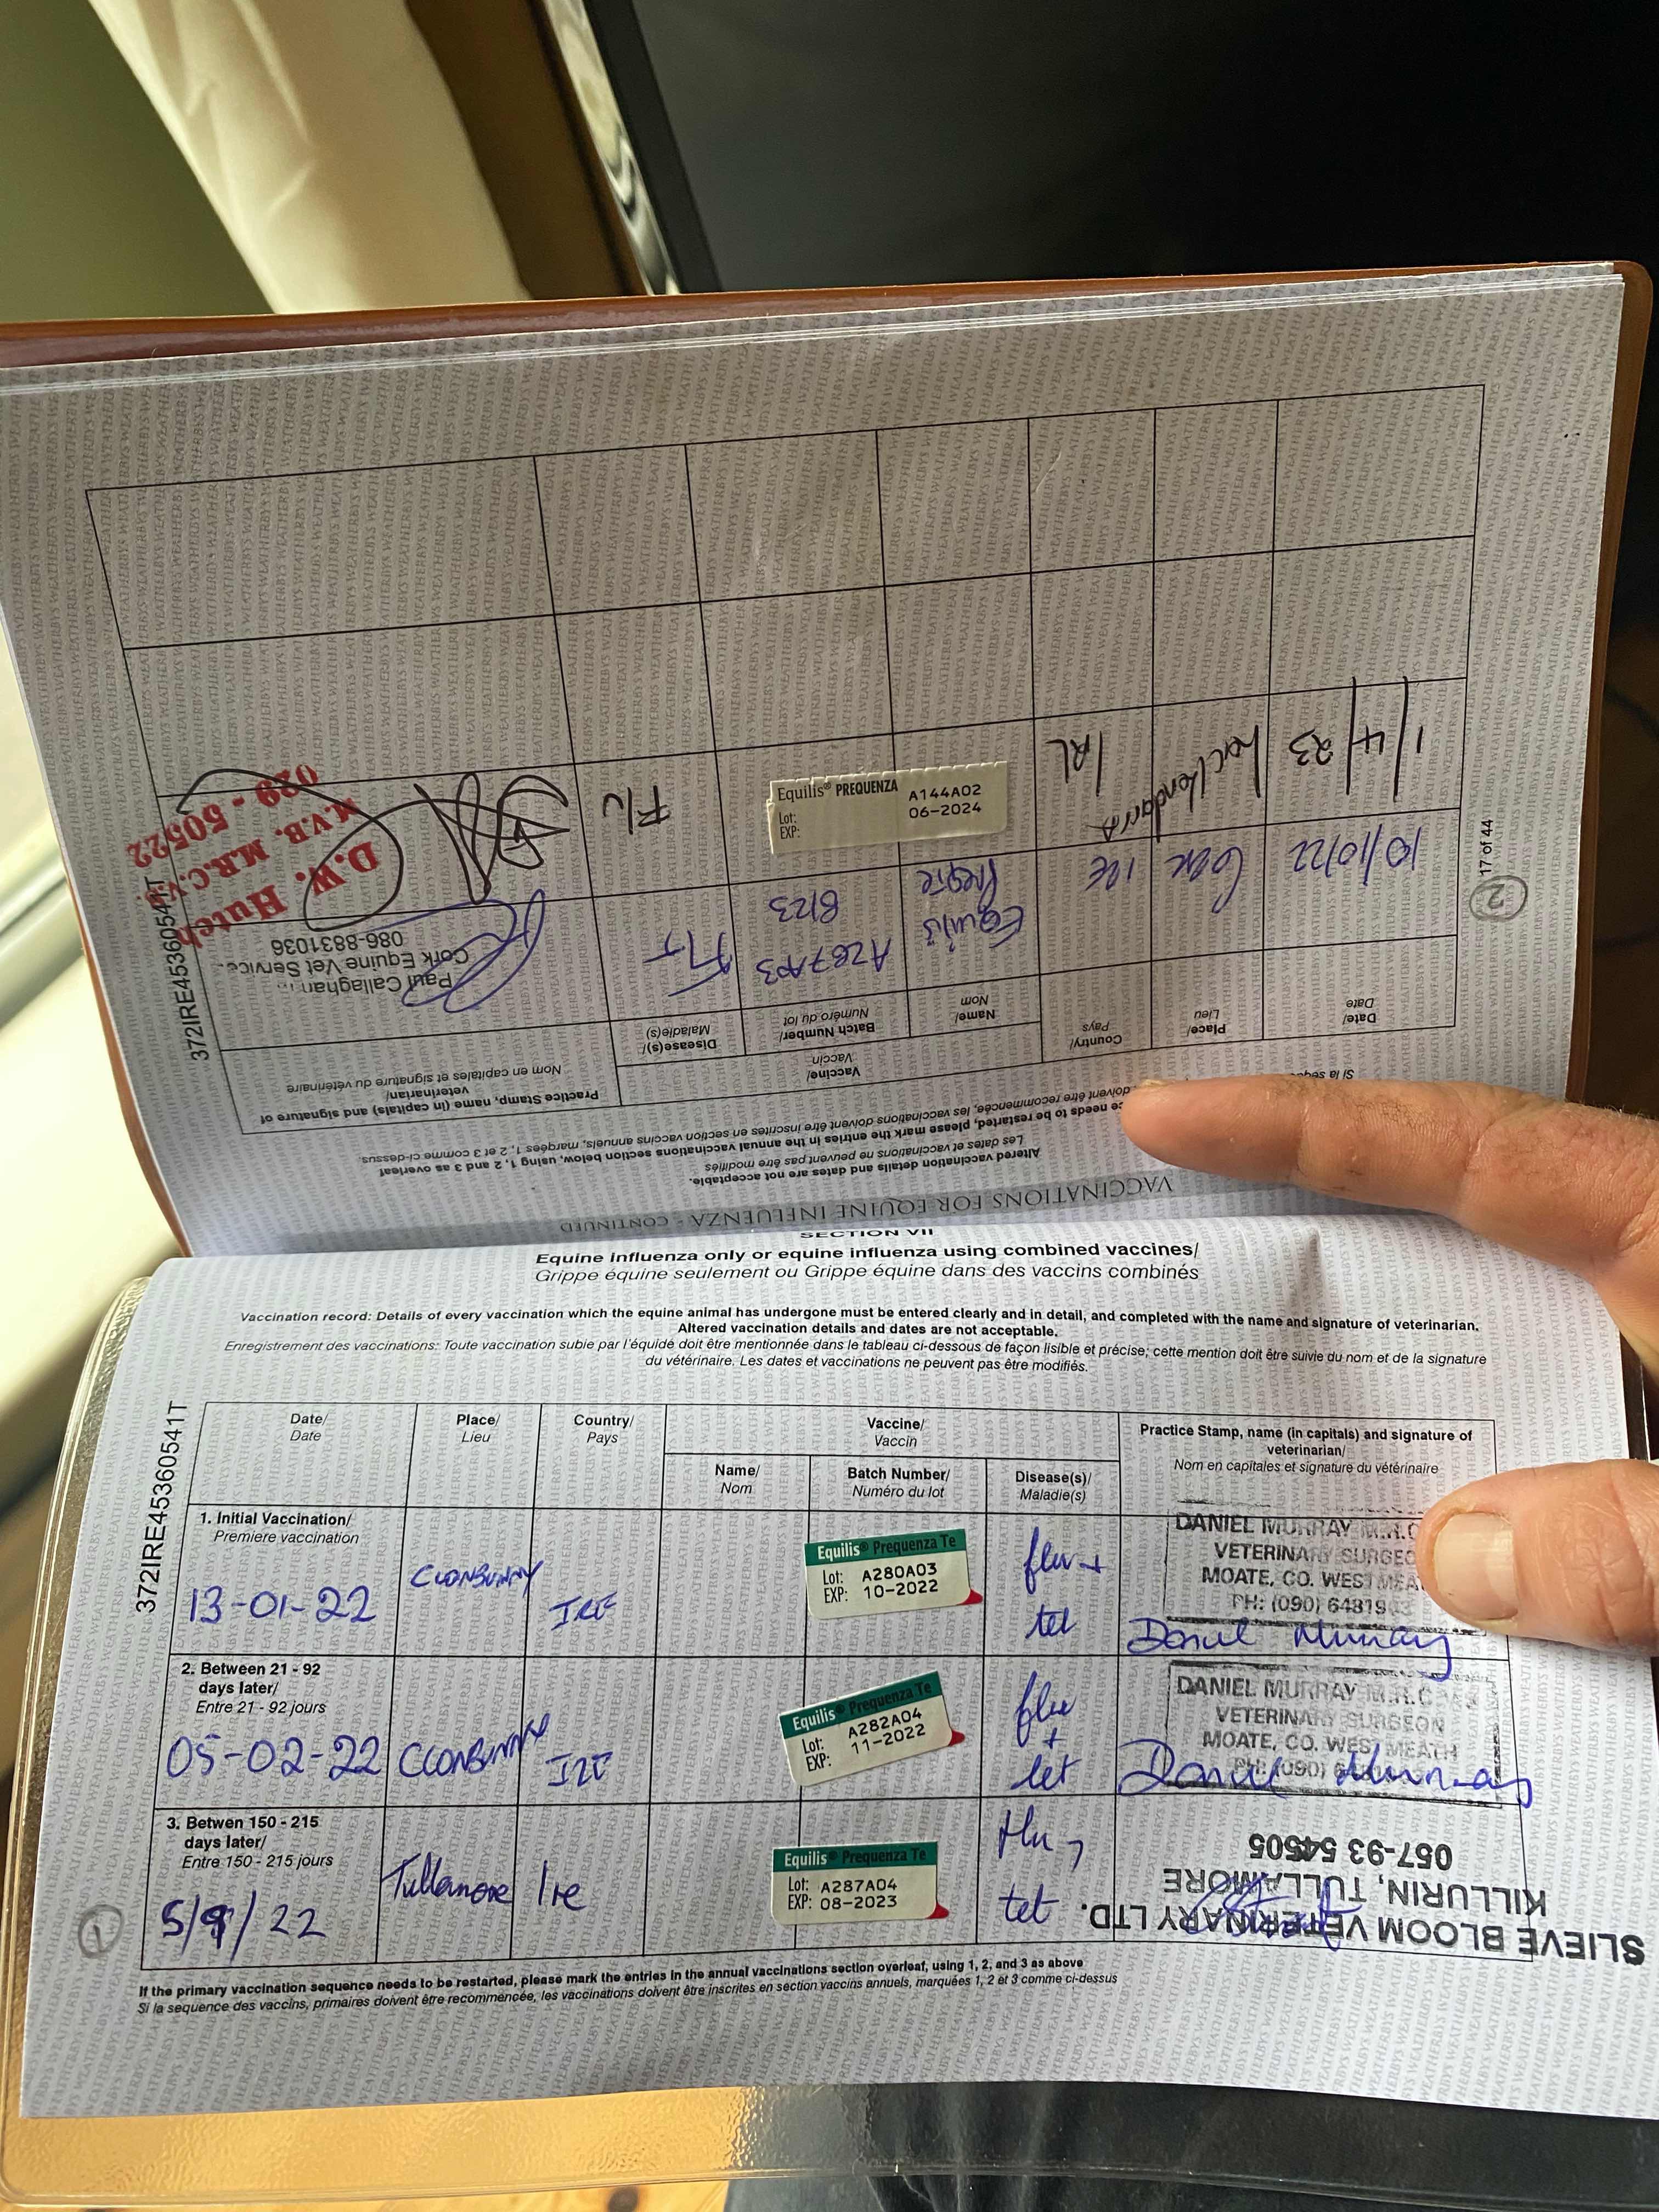 SECTION VII
Equine influenza only or equine influenza using combined vaccines/
Grippe équine seulement ou Grippe équine dans des vaccins combinés
Vaccination record: Details of every vaccination which the equine animal has undergone must be entered clearly and in detail, and completed with the name and signature of veterinarian.
Altered vaccination details and dates are not acceptable.
Enregistrement des vaccinations: Toute vaccination subie par l'équidé doit être mentionnée dans le tableau ci-dessous de façon lisible et précise; cette mention doit être suivie du nom et de la signature
du vétérinaire. Les dates et vaccinations ne peuvent pas être modifiés.
372IRE45360541T
Date/
Date
Place/
Lieu
Country/
Pays
Vaccine/
Vaccin
Name/
Nom
Batch Number/
Numéro du lot
Disease(s)/
Maladie(s)
Practice Stamp, name (in capitals) and signature of
veterinarian/
Nom en capitales et signature du vétérinaire
1. Initial Vaccination/
Premiere vaccination
13-01-22
CLONBUNNY
IRE
Equilis® Prequenza Te
Lot: A280A03
EXP: 10-2022
flu +
tet
DANIEL MURRAY M.R.C
VETERINARY SURGEO
MOATE, CO. WESTMEA
PH: (090) 64819
Daniel Murray
2. Between 21 - 92
days later/
Entre 21 - 92 jours
05-02-22
CLONBUNNY
IRE
Equilis® Prequenza Te
Lot: A282A04
EXP: 11-2022
flu
+
tet
DANIEL MURRAY M.R.C
VETERINARY SURGEON
MOATE, CO. WESTMEATH
PH: (090)
Daniel Murray
3. Betwen 150 - 215
days later/
Entre 150 - 215 jours
5/9/22
Tullamore
Ire
Equilis® Prequenza Te
Lot: A287A04
EXP: 08-2023
Flu,
tet
SLIEVE BLOOM VETERINARY LTD.
KILLURIN, TULLAMORE
057-93 54505
1
If the primary vaccination sequence needs to be restarted, please mark the entries in the annual vaccinations section overleaf, using 1, 2, and 3 as above
Si la sequence des vaccins, primaires doivent être recommencée, les vaccinations doivent être inscrites en section vaccins annuels, marquées 1, 2 et 3 comme ci-dessus
VACCINATIONS FOR EQUINE INFLUENZA - CONTINUED
Altered vaccination details and dates are not acceptable.
Les dates et vaccinations ne peuvent pas être modifiés
ce needs to be restarted, please mark the entries in the annual vaccinations section below, using 1, 2 and 3 as overleaf
Si la séqu
doivent être recommencée, les vaccinations doivent être inscrites en section vaccins annuels, marqées 1, 2 et 3 comme ci-dessus
Date/
Date
Place/
Lieu
Country/
Pays
Vaccine/
Vaccin
Name/
Nom
Batch Number/
Numéro du lot
Disease(s)/
Maladie(s)
Practice Stamp, name (in capitals) and signature of
veterinarian/
Nom en capitales et signature du vétérinaire
372IRE45360541T
10/10/22
Cork
IRE
Equilis
A287A03
8/23
Paul Callaghan
Cork Equine Vet Service
086-8831036
1/4/23
IRL
Equilis® PREQUENZA
Lot: A144A02
EXP: 06-2024
Flu
D.W. Hutch
M.V.B. M.R.C.V.S.
029 - 50522
2
17 of 44